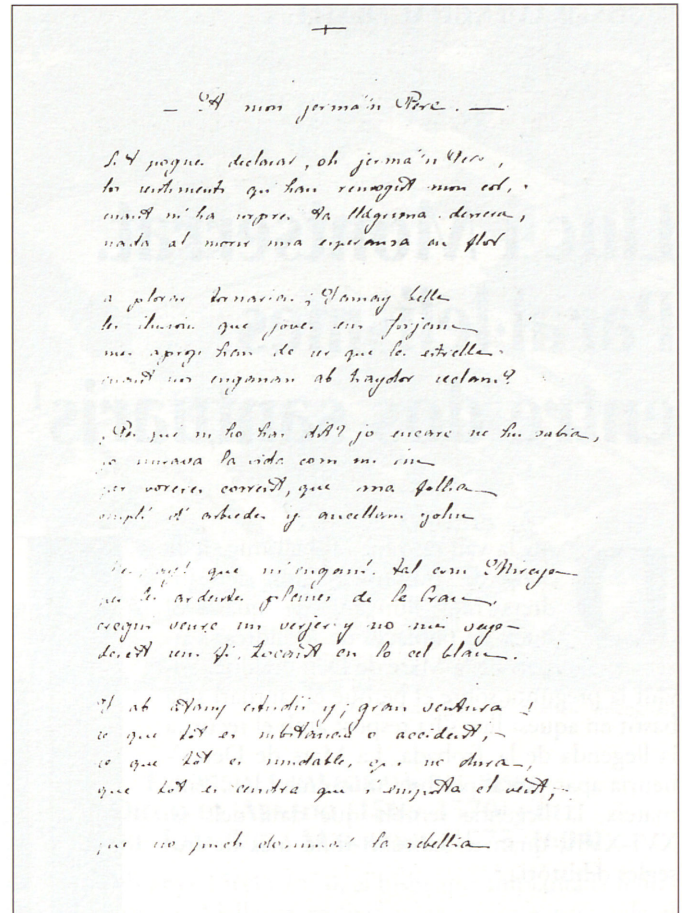 — A mon jermá'n Pere. —
Si't pogues declarar, oh jermá'n Pere,
los sentiments qu'han remogut mon cor,
cuant m'ha sorpres ta llágrima derrera,
nada al morir una esperansa en flor
a plorar tornarian; ¡Jamay bella
les ilusions que joves ens forjam
mes aprop han de ser que les estrelles
cuant nos enganan ab traydor reclam?
¿Per qué m ho has dit? jo encare no hu sabia,
jo mirava la vida com un riu
per voreres corrent, que una follia
omplí d' arbredes y aucellam joliu
que m'enganí, tal com Mireya
per les ardentes planes de la Crau
cregui veure un verjer y no mes veya
desert sens fi, tocant en lo cel blau.
Y ab atany estudii y, gran ventura!
se que tot es substancia o accident,
se que tot es mudable, qu no dura,
que tot es cendra que s'emporta el vent,
que no puch dominar la rebellia